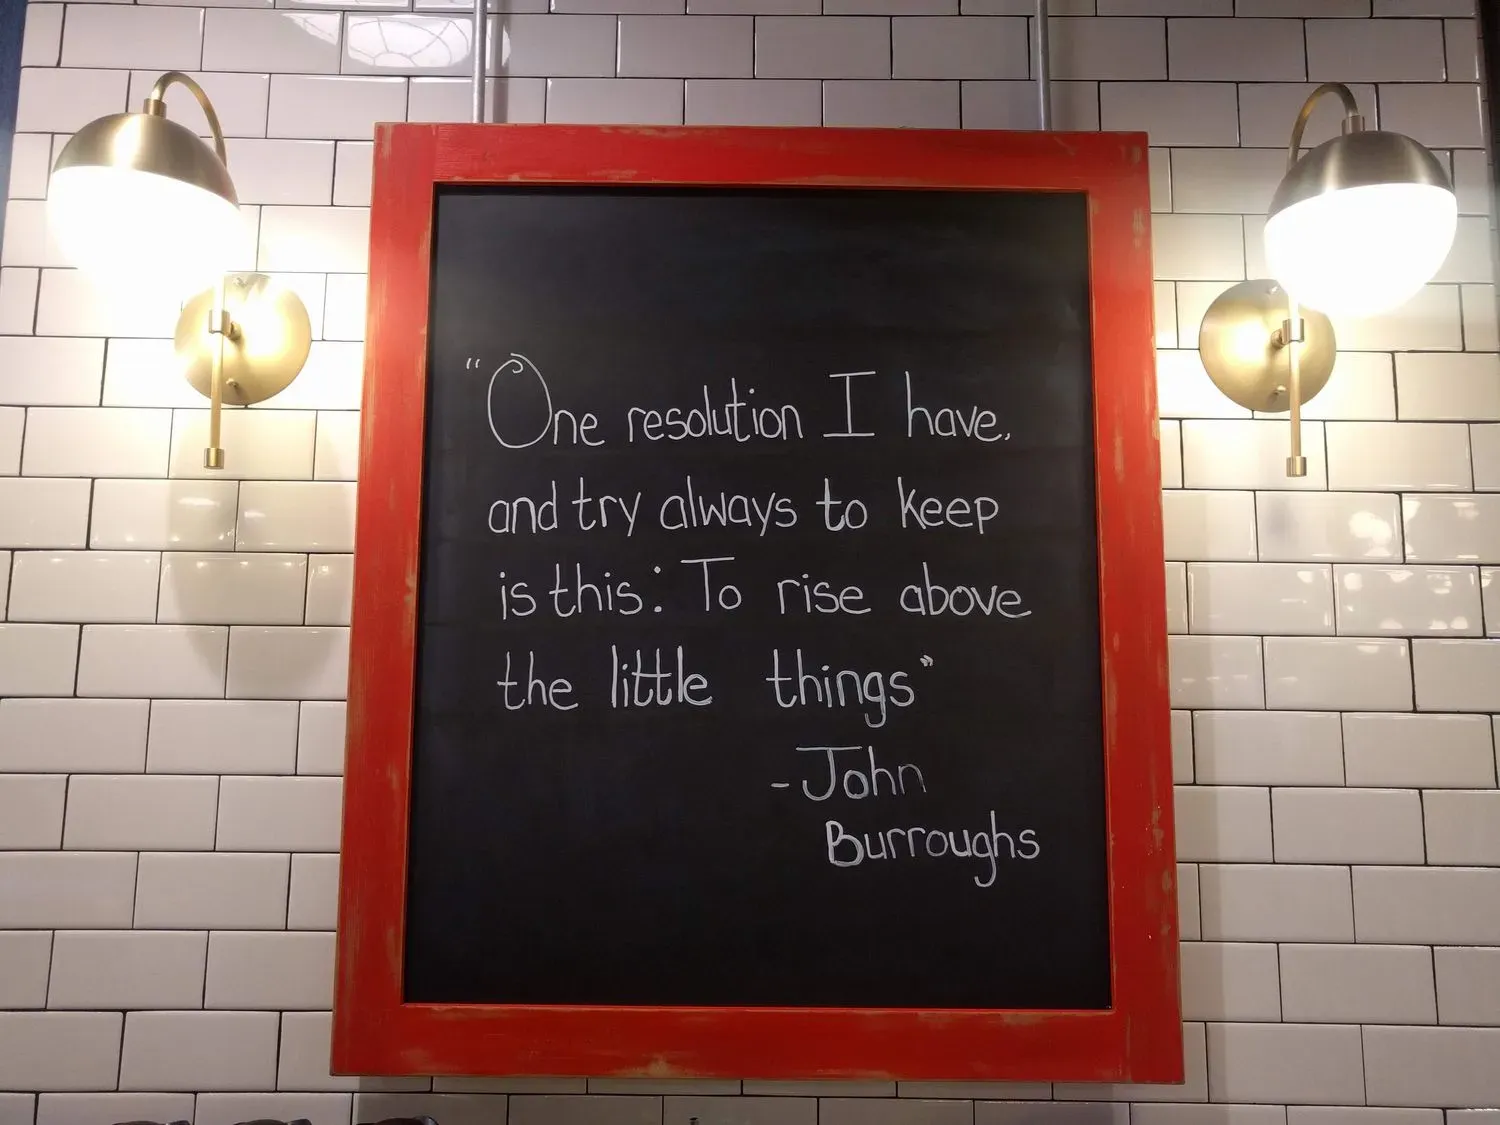 "One resolution I have,
and try always to keep
is this: To rise above
the little things"
-John
Burroughs